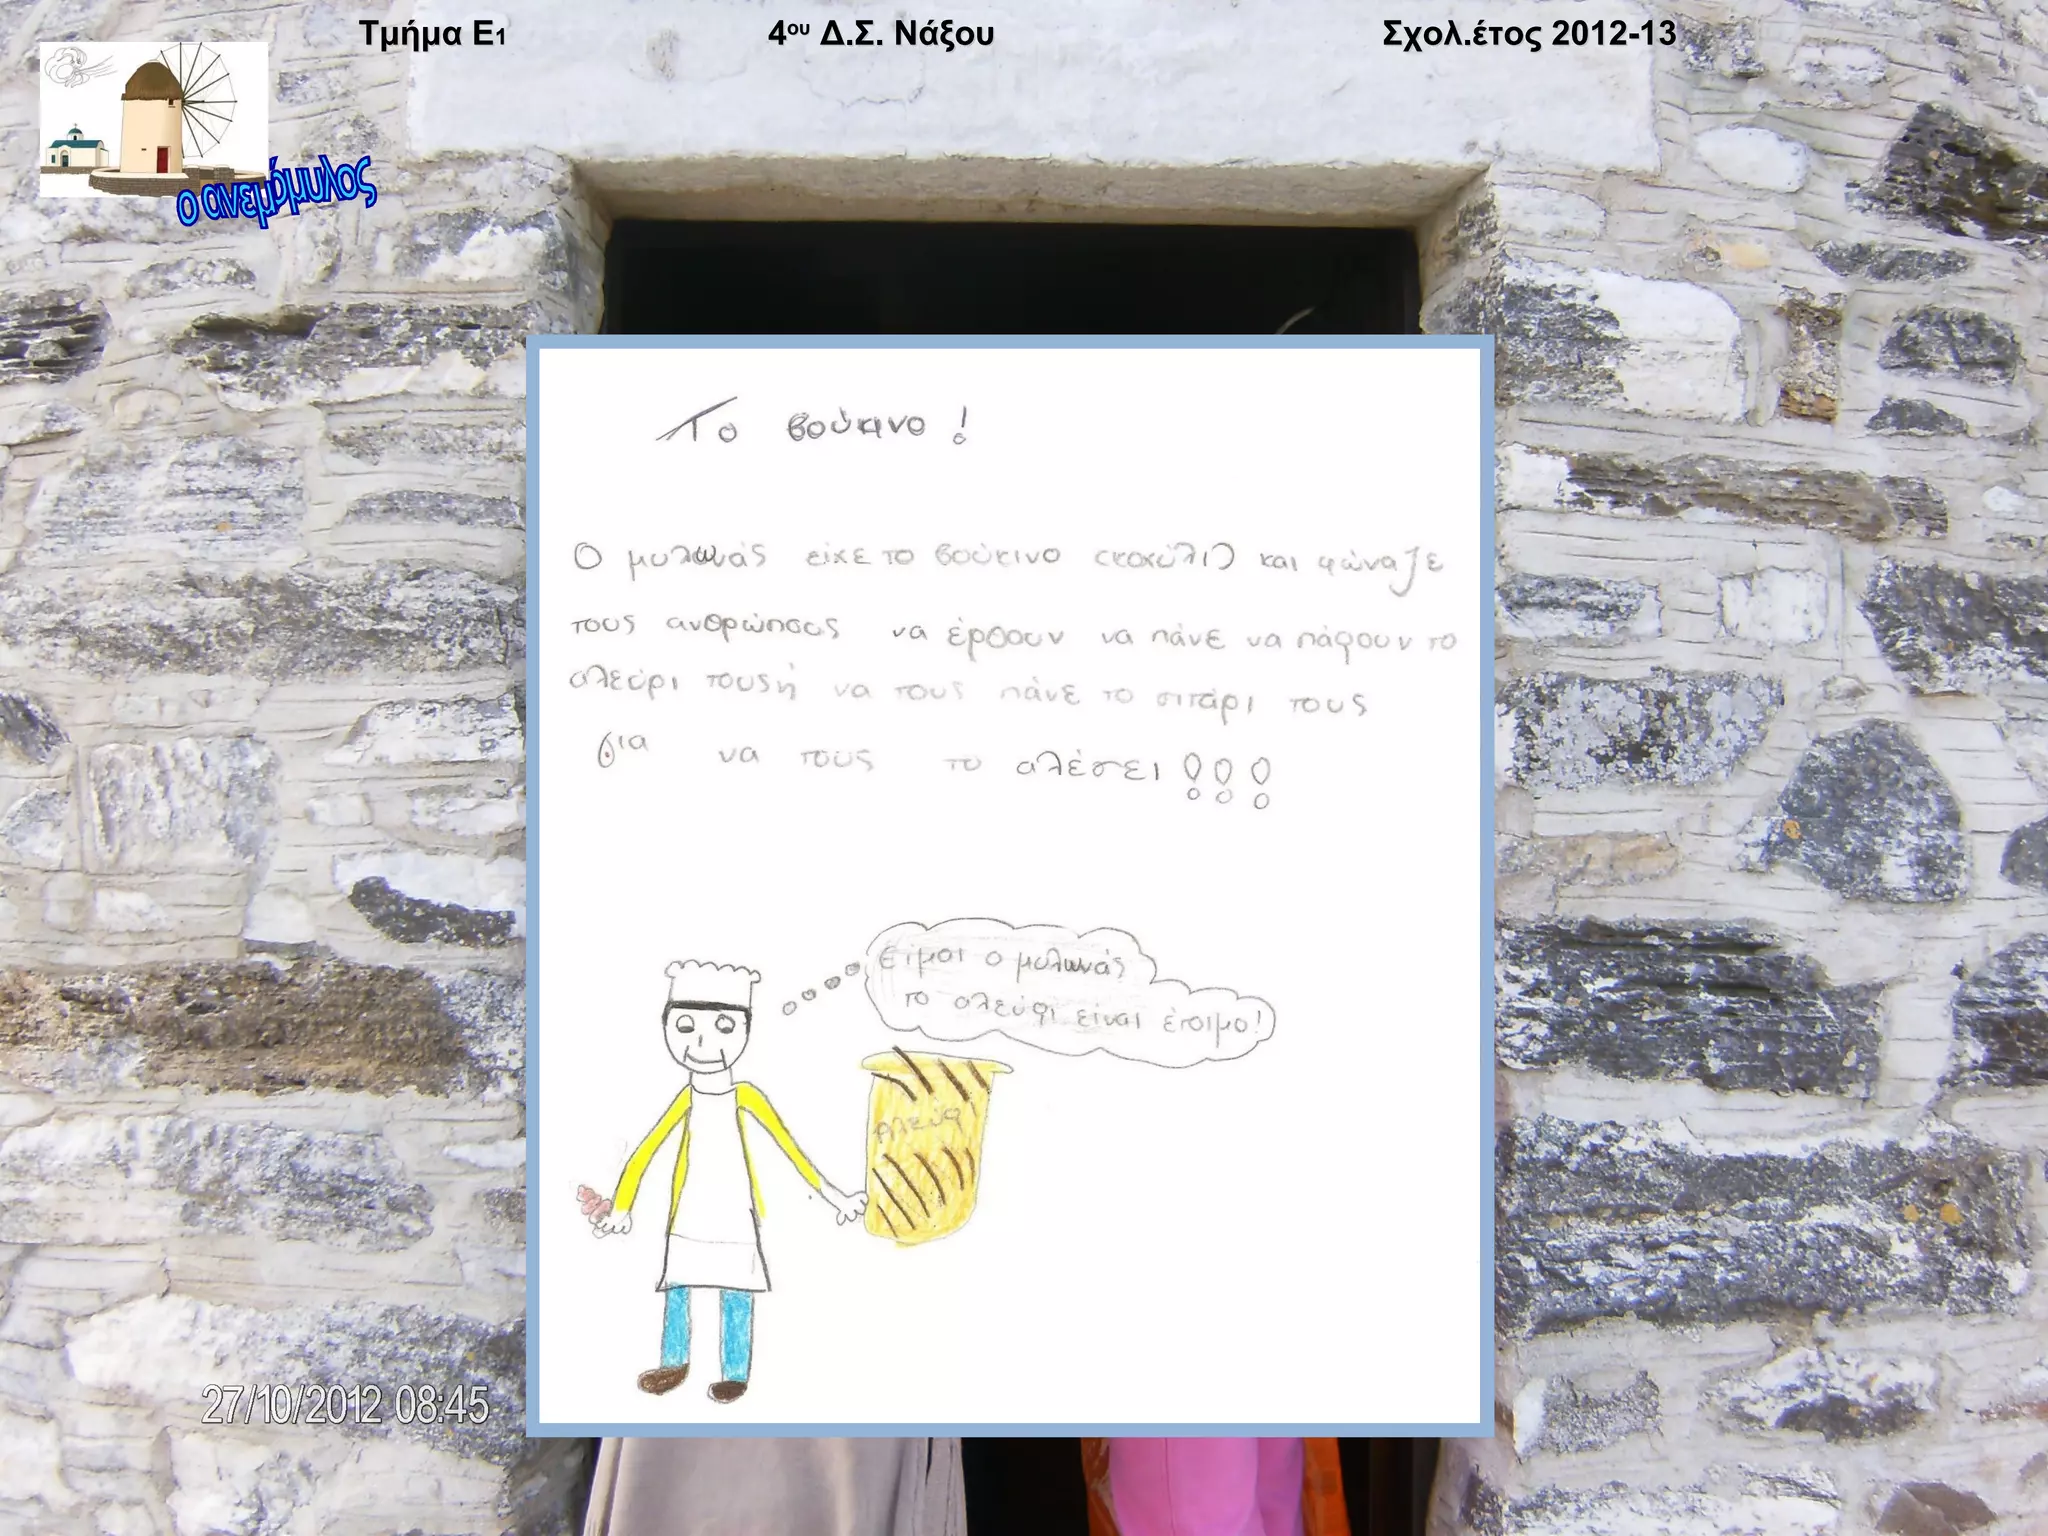 Τμήμα Ε1 4ου Δ.Σ. Νάξου Σχολ.έτος 2012-13
ο ανεμόμυλος
Το βούκινο!
Ο μυλωνάς είχε το βούκινο (κοχύλι) και φώναζε
τους ανθρώπους να έρθουν να πάνε να πάρουν το
αλεύρι τους ή να τους πάνε το σιτάρι τους
για να τους το αλέσει!!!
είμαι ο μυλωνάς
το αλεύρι είναι έτοιμο!
αλεύρι
27/10/2012 08:45